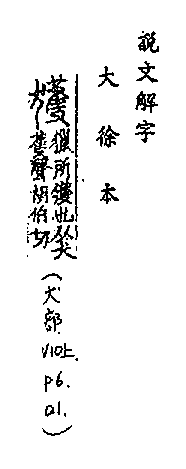 説文解字
大徐本
獲 獵所獲也从犬
蒦聲胡伯切
(犬部 V10上. P6. 01.)